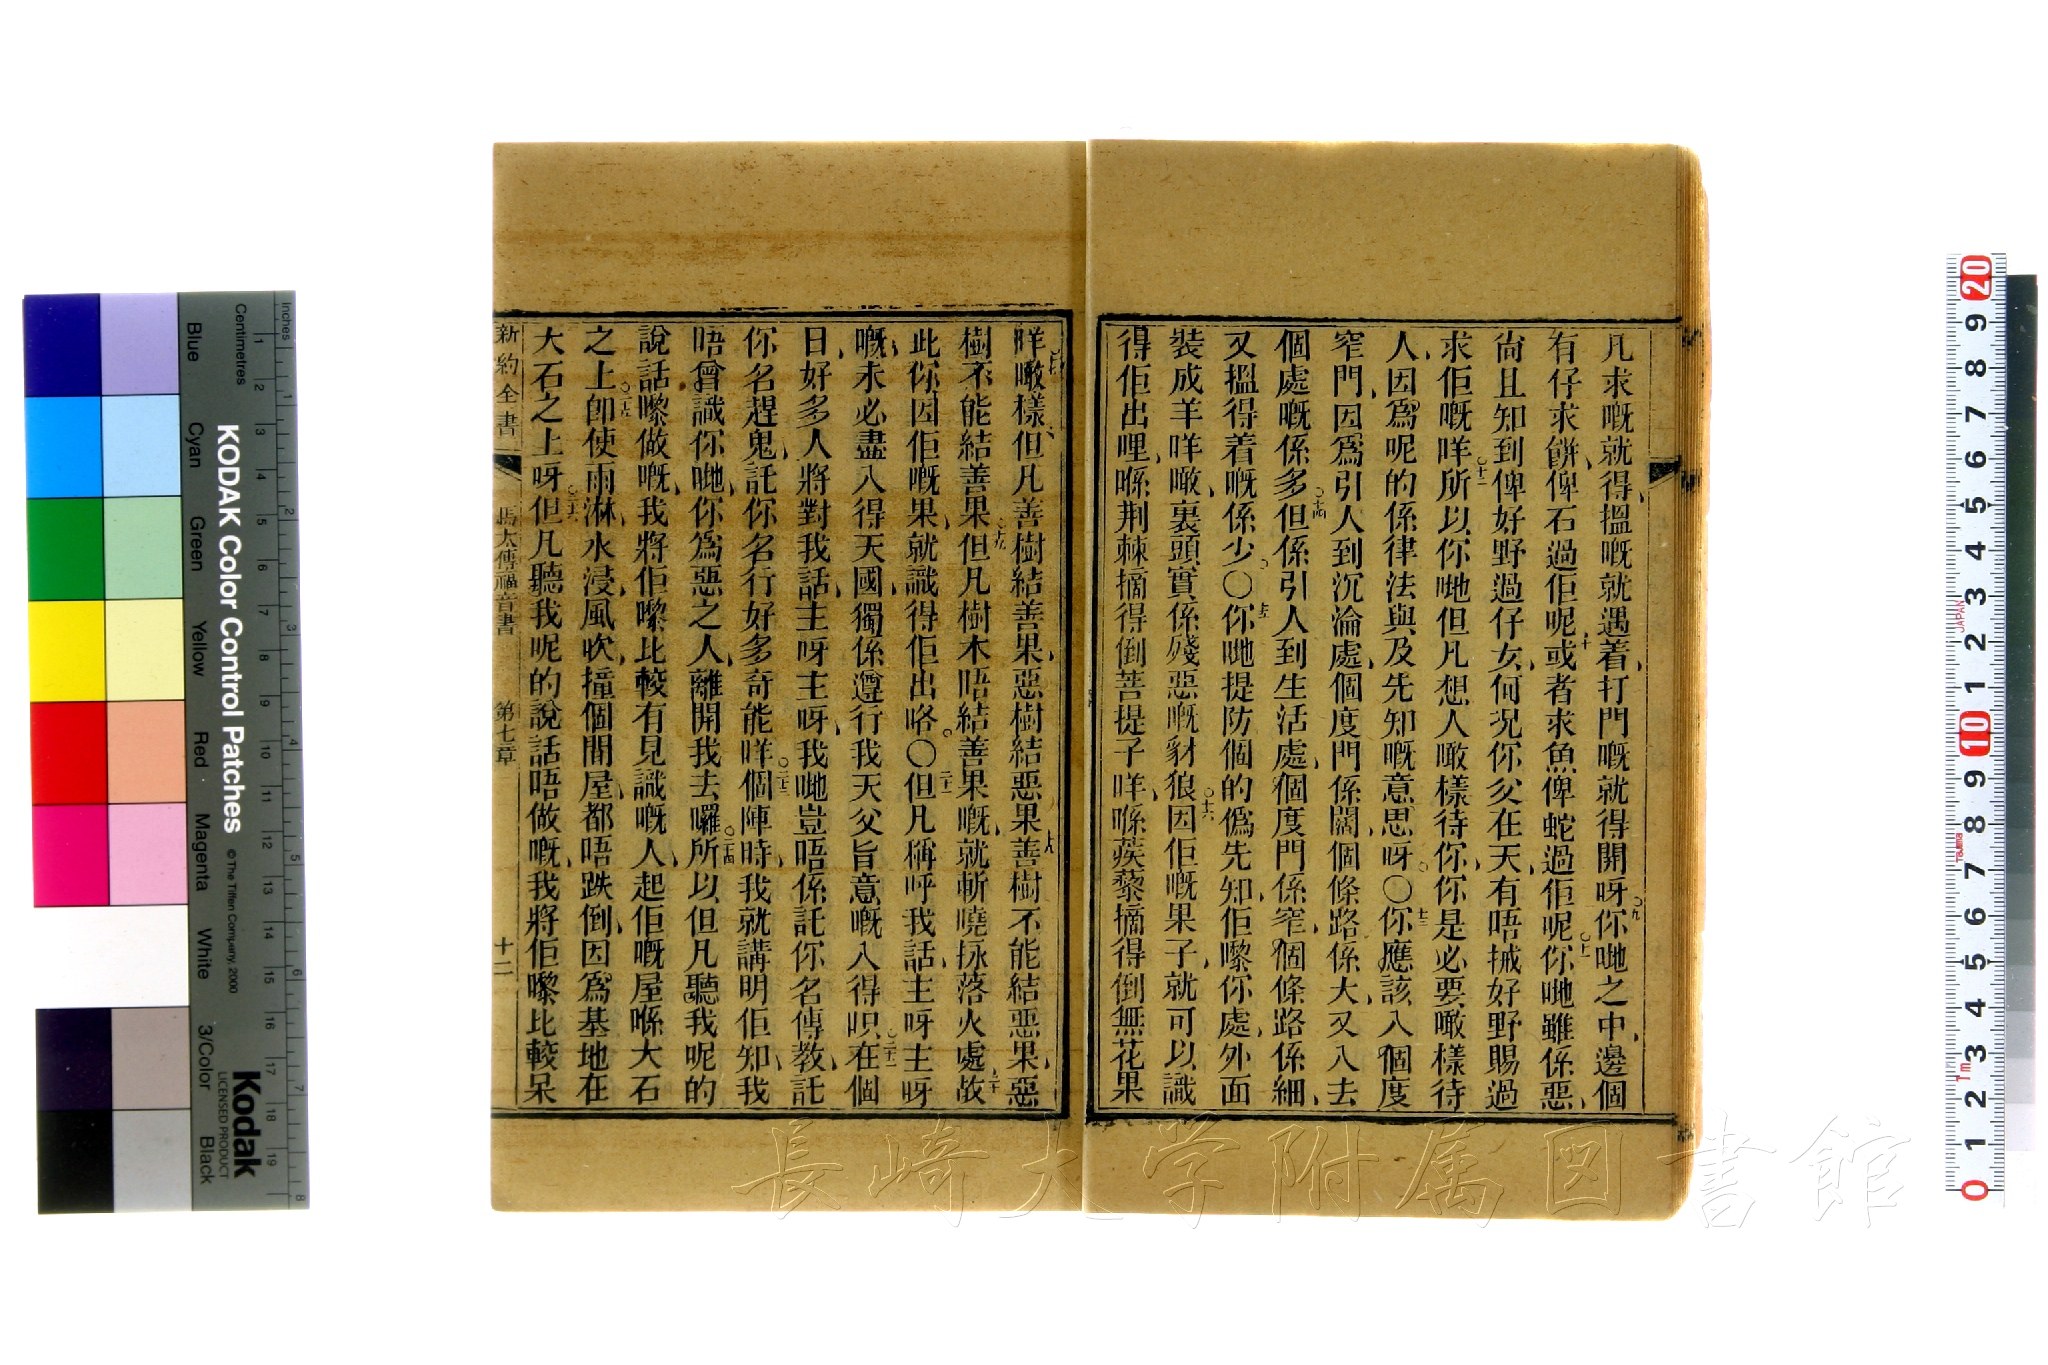 凡求嘅就得搵嘅就遇着打門嘅就得開呀○九你哋之中邊個
有仔求餅俾石過佢呢十或者求魚俾蛇過佢呢○十一你哋雖係惡
尚且知到俾好野過仔女何况你父在天有唔搣好野賜過
求佢嘅咩○十二所以你哋但凡想人噉樣待你你是必要噉樣待
人因爲呢的係律法與及先知嘅意思呀○十三你應該入個度
窄門因爲引人到沉淪處個度門係濶個條路係大又入去
個處嘅係多○十四但係引人到生活處個度門係窄個條路係細
又搵得着嘅係少○十五你哋提防個的僞先知佢嚟你處外面
裝成羊咩噉裏頭實係殘惡嘅豺狼○十六因佢嘅果子就可以識
得佢出哩喺荆棘摘得倒菩提子咩喺蒺藜摘得倒無花果
咩十七噉樣但凡善樹結善果惡樹結惡果十八善樹不能結惡果惡
樹不能結善果○十九但凡樹木唔結善果嘅就斬嘵抌落火處二十故
此你因佢嘅果就識得佢出咯○二十一但凡稱呼我話主呀主呀
嘅未必盡入得天國獨係遵行我天父旨意嘅入得呮○二十二在個
日好多人將對我話主呀主呀我哋豈唔係託你名傳教託
你名趕鬼託你名行好多奇能咩○二十三個陣時我就講明佢知我
唔曾識你哋你爲惡之人離開我去囉○二十四所以但凡聽我呢的
說話嚟做嘅我將佢嚟比較有見識嘅人起佢嘅屋喺大石
之上○二十五卽使雨淋水浸風吹撞個間屋都唔跌倒因爲基地在
大石之上呀○二十六但凡聽我呢的說話唔做嘅我將佢嚟比較呆
新約全書 馬太傳福音書 第七章 十二
長崎大学附属図書館
KODAK Color Control Patches
© The Tiffen Company, 2000
Kodak
LICENSED PRODUCT
Inches
Centimetres
Blue Cyan Green Yellow Red Magenta White 3/Color Black
1 2 3 4 5 6 7 8 9 10 11 12 13 14 15 16 17 18 19
1 2 3 4 5 6 7 8
20 9 8 7 6 5 4 3 2 1 10 9 8 7 6 5 4 3 2 1 0
JAPAN
Tajima
1m